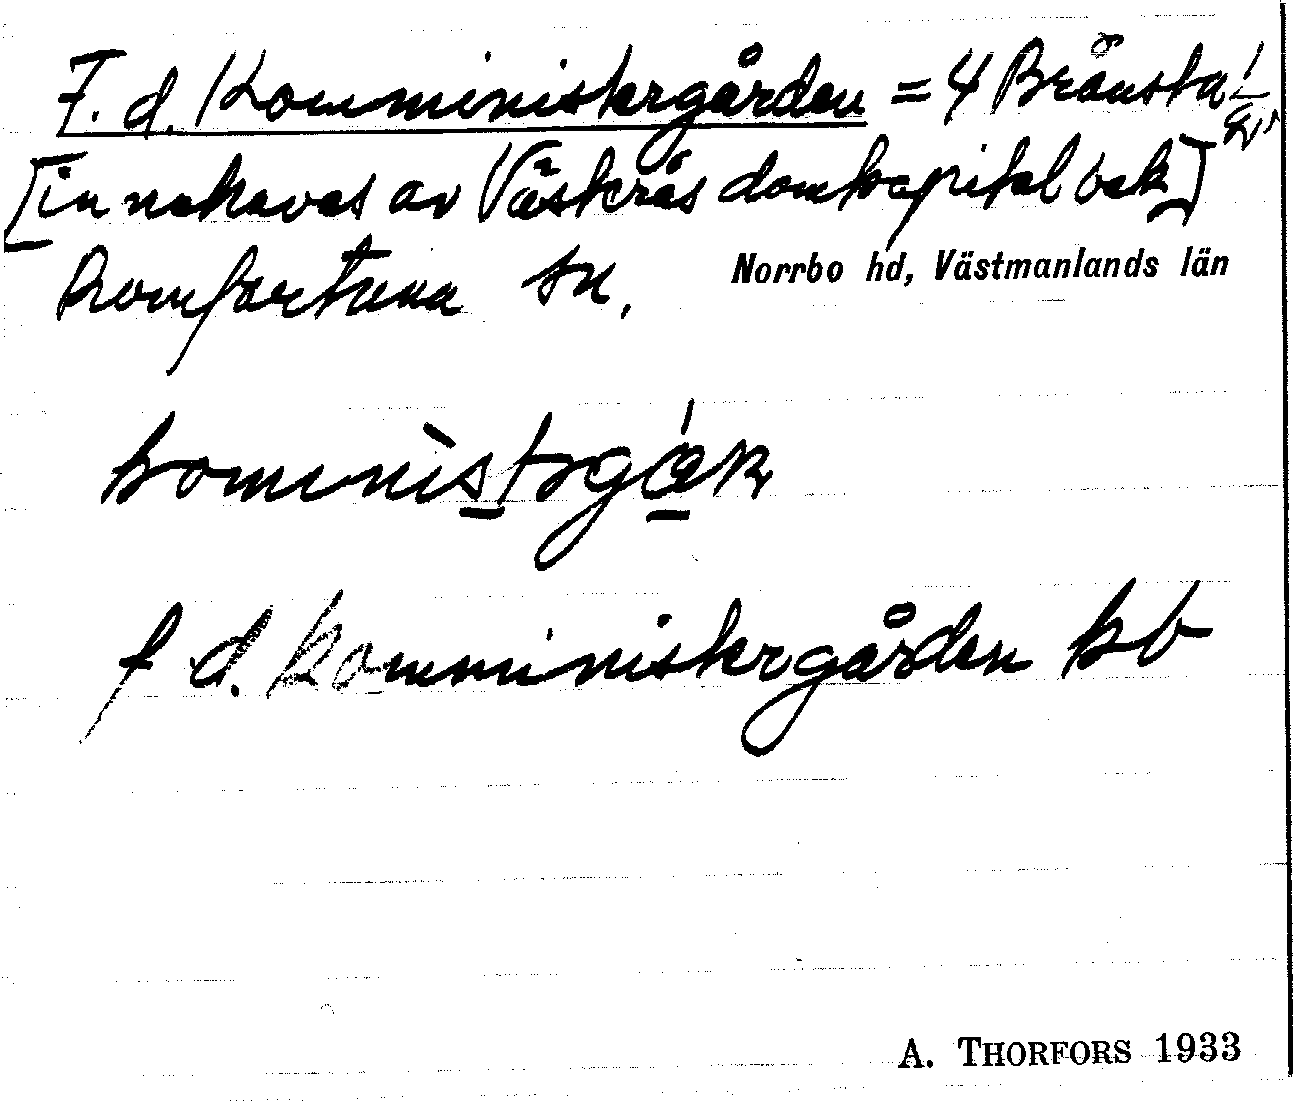 F. d. Komministergården = 4 Brånsta 1/2
[innehaves av Västerås domkapitel bok]
Romfartuna sn, Norrbo hd, Västmanlands län
f d. kommunistergården kb
A. THORFORS 1933